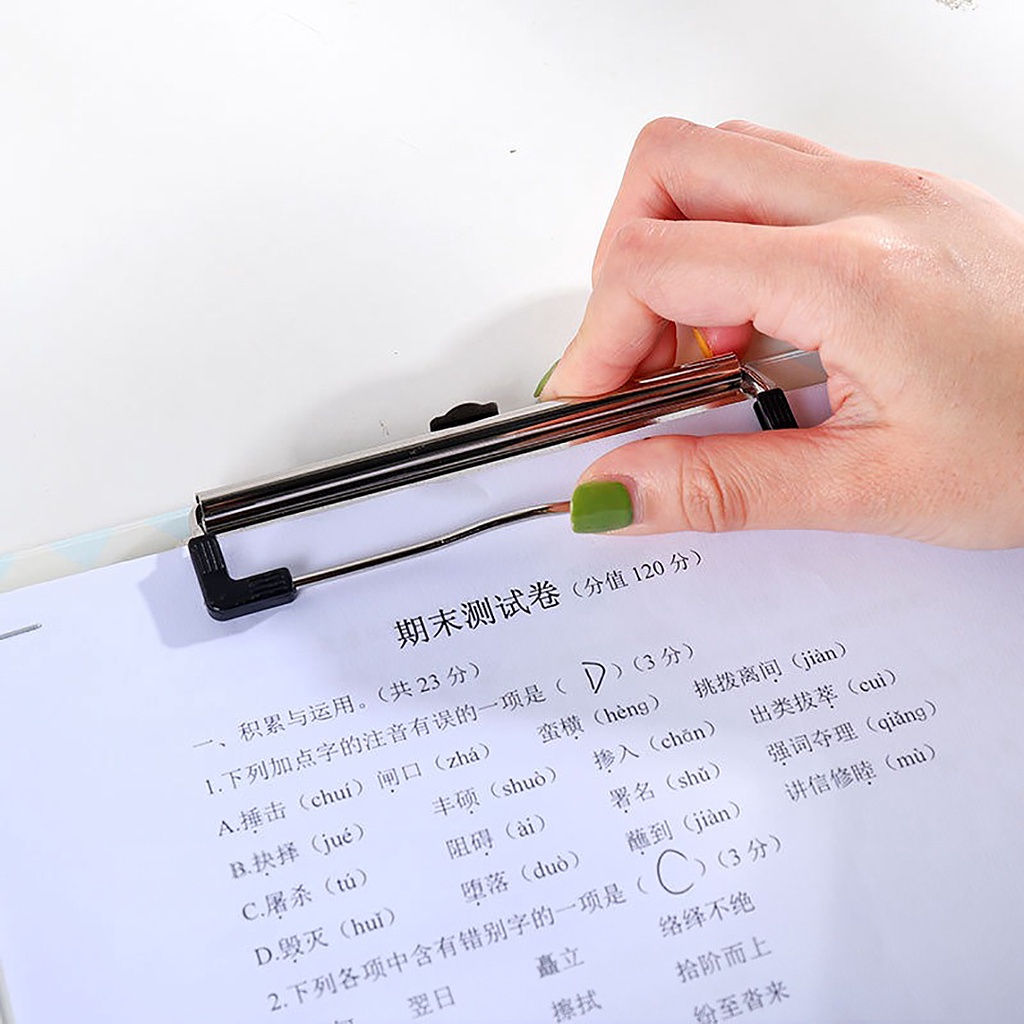 期末测试卷（分值 120 分）
一、积累与运用。（共 23 分）
1.下列加点字的注音有误的一项是（ D ）（3 分）
A.捶击（chuí） 闸口（zhá） 蛮横（hèng） 挑拨离间（jiàn）
B.抉择（jué） 丰硕（shuò） 掺入（chān） 出类拔萃（cuì）
C.屠杀（tú） 阻碍（ài） 署名（shǔ） 强词夺理（qiǎng）
D.毁灭（huǐ） 堕落（duò） 蘸到（jiàn） 讲信修睦（mù）
2.下列各项中含有错别字的一项是（ C ）（3 分）
翌日 矗立 络绎不绝
擦拭 拾阶而上
纷至沓来